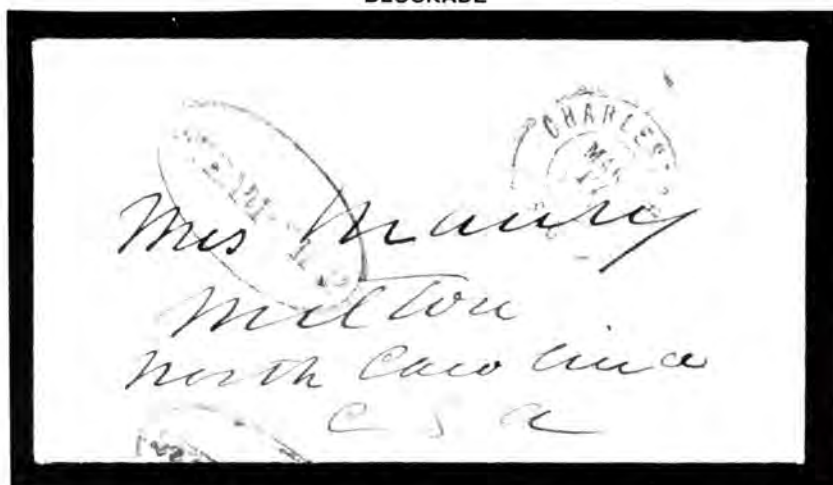 CHARLES
MAR
Mrs Maury
Milton
North Carolina
C S A